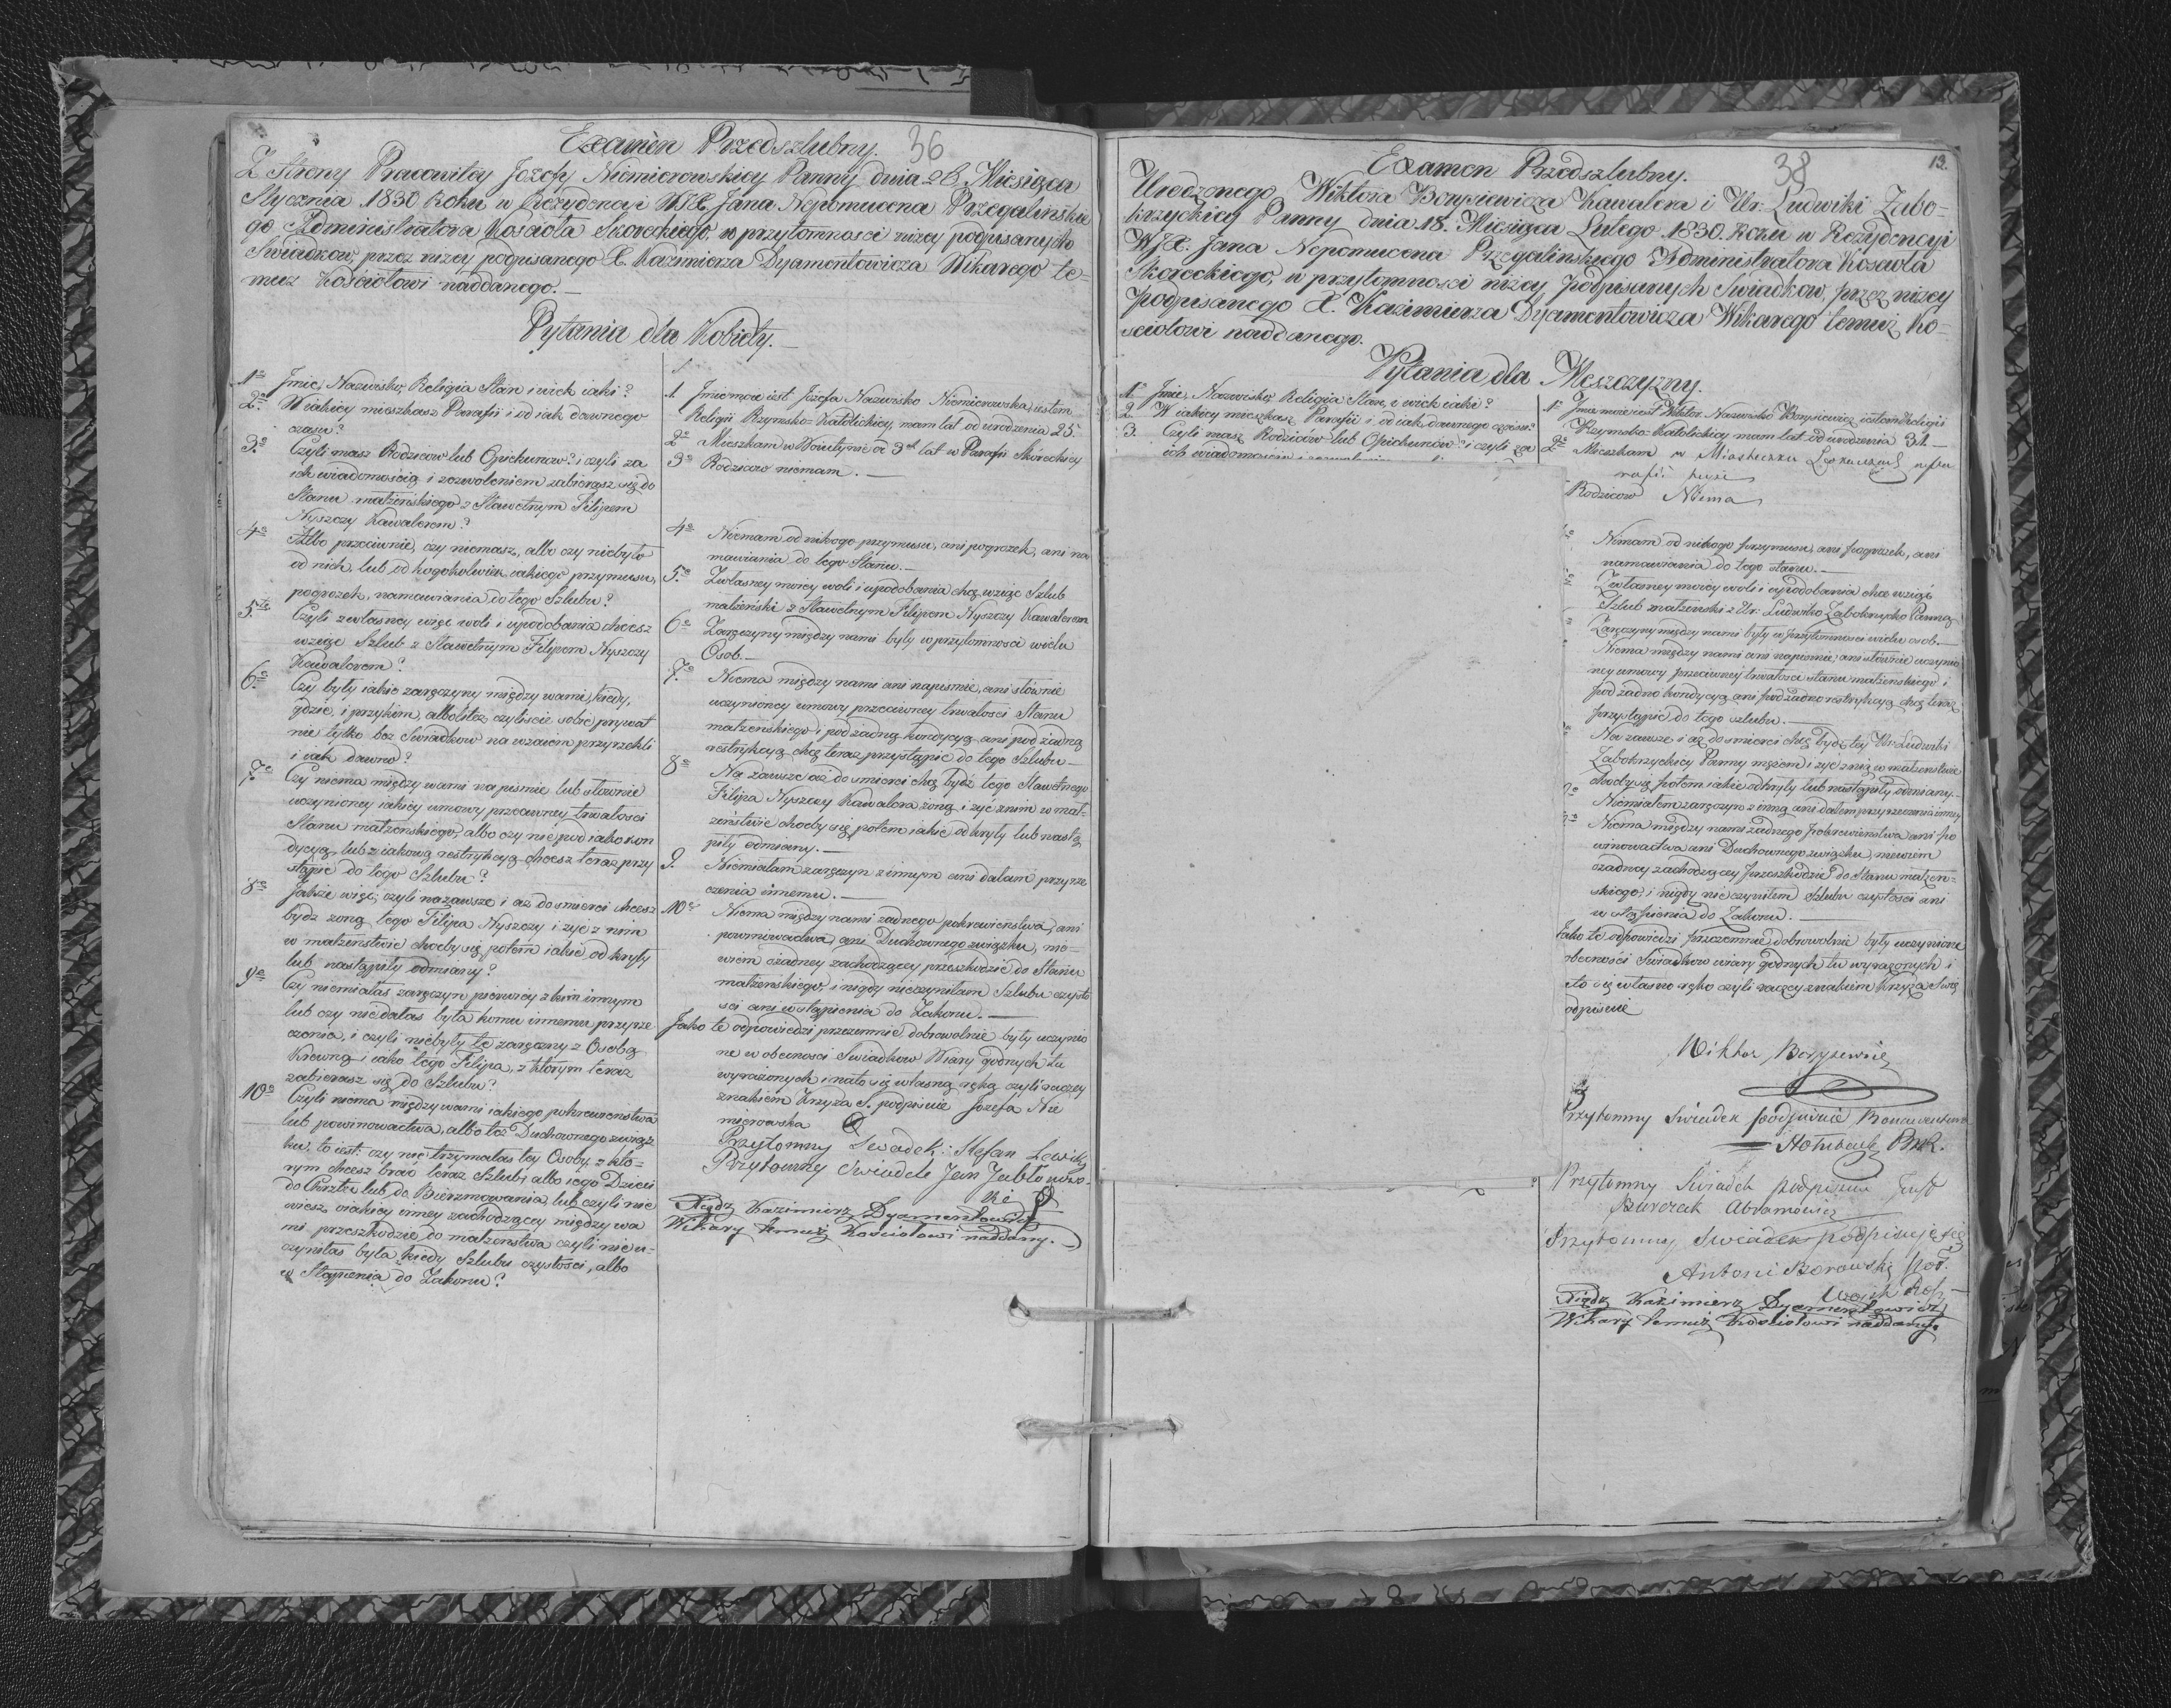 Examen Przedszlubny.
36
Z Strony Pracowitey Jozefy Niemierowskiey Panny dnia 28. Miesiąca
Stycznia 1830 Roku w Rezydencyi WJX. Jana Nepomucena Przegalińskie
go Administratora Kościoła Skoreckiego, w przytomnosci niżey podpisanych
Swiadkow, przez niżey podpisanego X. Kazimierza Dyamentowicza Wikarego te-
muz Kościołowi naddanego.—
Pytania dla Kobiety.—
1o Jmie, Nazwisko, Religia Stan i wiek iaki?
2o Wiakiey mieszkasz Parafii i od iak dawnego
czasu?
3o Czyli masz Rodzicow lub Opiekunow? i czyli za
ich wiadomością i zezwoleniem zabierasz się do
Stanu małżeńskiego z Sławetnym Filipem
Nyszczy Kawalerem?
4o Albo przeciwnie, czy niemasz, albo czy niebyło
od nich, lub od kogokolwiek iakiego przymusu,
pogrozek, namawiania do tego Szlubu?
5to Czyli zwłasney więc woli i upodobania chcesz
wziąc Szlub z Sławetnym Filipem Nyszczy
Kawalerem?
6o Czy były iakie zaręczyny między wami, kiedy,
gdzie, i przykim, albolitez czyliscie sobie prywat
nie tylko bez Swiadkow na wzaiem przyrzekli
i iak dawno?
7o Czy niema między wami na pismie lub słownie
uczynioney iakiey umowy przeciwney trwałości
Stanu małżenskiego, albo czy nie pod iako kon
dycyą, lub z iakową restrykcyą chcesz teraz przy
stąpic do tego Szlubu?
8o Jakże więc, czyli nazawsze i aż dosmierci chcesz
bydz zoną tego Filipa Nyszczy i zyc z nim
w małzenstwie choćby się potem iakie odkryły
lub nastąpiły odmiany?
9o Czy niemiałas zaręczyn pierwiey z kim innym
lub czy niedałas była komu innemu przyrze
czenia, i czyli niebyły te zaręczyny z Osobą
Krewną i iako tego Filipa, z którym teraz
zabierasz się do Szlubu?
10o Czyli niema między wami iakiego pokrewenstwa
lub powinowactwa, albo toż Duchownego związ
ku, to iest: czy nie trzymałas tey Osoby, z kto-
rym chcesz brać teraz Szlub, albo iego Dzieci
do Chrztu lub do Bierzmowania, lub czyli nie
wiesz oiakiey inney zachodzącey między wa
mi przeszkodzie do małzenstwa czyli nie u-
czyniłas była kiedy Szlubu czystości, albo
w Stąpienia do Zakonu?
1 Jmie moie iest Jozefa Nazwisko Niemierowska, iestem
Religii Rzymsko-Katolickiey, mam lat od urodzenia 25.
2o Mieszkam w od 3ch lat w Parafii Skoreckiey
3o Rodzicow niemam.—
4o Niemam od nikogo przymusu, ani pogrozek, ani na
mawiania do tego Stanu.—
5o Zwłasney moiey woli i upodobania chcę wziąc Szlub
małżeński z Sławetnym Filipem Nyszczy Kawalerem
6o Zaręczyny między nami były w przytomnosci wielu
Osob.—
7o Niema między nami ani napismie, ani słownie
uczynioney umowy przeciwney trwałosci Stanu
małżeńskiego i podżadną kondycyą ani pod żadną
restrykcyą chcę teraz przystąpic do tego Szlubu—
8o Na zawsze aż do smierci chcę bydz tego Sławetnego
Filipa Nyszczy Kawalera zoną i zyc znim w mał-
zeństwie choćby się potem iakie odkryły lub nastą
piły odmiany.—
9. Niemiałam zaręczyn zinnym ani dałam przyrze
czenia innemu.—
10o Niema między nami żadnego pokrewieństwa, ani
powinowactwa, ani Duchownego związku, nie-
wiem ożadney zachodzącey przeszkodzie do Stanu
małżenskiego, i nigdy nieczyniłam Szlubu czysto
sci ani wstąpienia do Zakonu.—
Jako te odpowiedzi przezemnie dobrowolnie były uczynio
ne w obecnosci Swiadkow Wiary godnych tu
wyrażonych i nato się własną ręką czyli raczey
znakiem Krzyża S. podpisuie Jozefa Nie
mierowska
Przytomny Swadek: Stefan
Przytomny Swiadek Jan Jabłonow-
ski
Xiądz Kazimierz Dyamentowicz
Wikary temuz Kościołowi naddany.
Examen Przedszlubny.
38
13.
Urodzonego Wiktora Borysiewicza Kawalera i Ur. Ludwiki Zabo-
krzyckiey Panny dnia 18. Miesiąca Lutego 1830. Roku w Rezydencyi
WJX. Jana Nepomucena Przegalińskiego Administratora Koscioła
Skoreckiego, w przytomnosci niżey podpisanych Swiadkow, przez niżey
podpisanego X. Kazimierza Dyamentowicza Wikarego temuż Ko-
sciołowi naddanego.
Pytania dla Męszczyzny.
1o Jmie, Nazwisko, Religia Stan, i wiek iaki?
2. W iakiey mieszkasz Parafii i od iak dawnego czasu?
3. Czyli masz Rodzicow lub Opiekunow? i czyli za
ich wiadomoscią i
1o Jmie moie iest Wiktor Nazwisko Borysiewicz, iestem Religii
Rzymsko-Katolickiey mam lat od urodzenia 31.—
2o Mieszkam w Miasteczku w Pa
rafii
Rodzicow Niema
Nimam od nikogo przymusu, ani pogrozek, ani
namawiania do tego stanu.—
Zwłasney moiey woli i upodobania chce wziąć
Szlub małzenski z Ur: Ludwiką Zabokrzycką Panną
Zaręczyny między nami były w przytomnosci wielu osob.—
Niema między nami ani napismie, ani słownie uczynio
ney umowy przeciwney trwałosci stanu małżenskiego i
pod żadno kondycyą ani pod żadno restrykcyą chcę teraz
przystąpic do tego szlubu.—
Na zawsze i aż do smierci chcę bydz tey Ur. Ludwiki
Zabokrzyckiey Panny mężem i zyc znią w małzenstwie
chocby się potem iakie odkryły lub nastąpiły odmiany.—
Niemiałem zaręczyn z inną ani dałem przyrzeczenia inney
Niema między nami żadnego pokrewienstwa ani po
winowactwa ani Duchownego związku, niewiem
ożadney zachodzącey przeszkodzie do Stanu małżen-
skiego, i nigdy nie czyniłem Szlubu czystosci ani
w stąpienia do Zakonu.—
Jako te odpowiedzi przezemnie dobrowolnie były uczynione
obecnosci Swiadkow wiary godnych tu wyrażonych i
ato się własno ręko czyli raczey znakiem krzyża Swię
odpisuie
Wiktor Borysewicz
Przytomny Swiadek podpisuie
Przytomny Swiadek podpisuie
Abramowicz
Przytomny Swiadek podpisuje się
Antoni Borowski
Xiądz Kazimierz Dyamentowicz
Wikary temuż Kościołowi naddany.